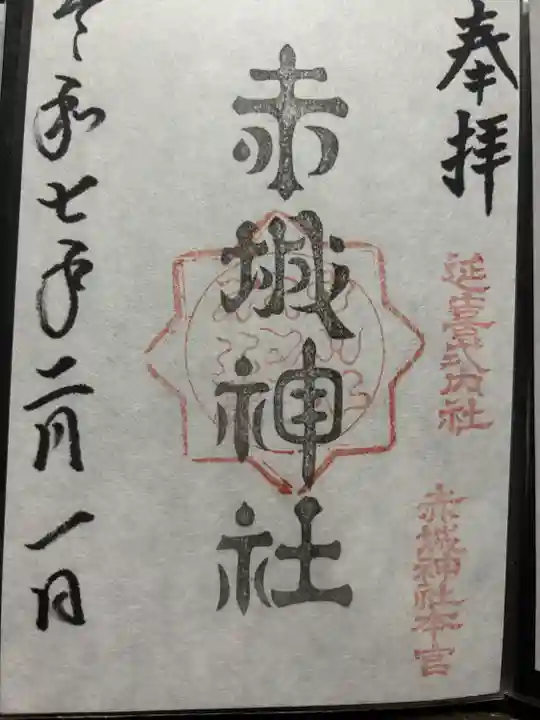 奉拝
延喜式内社
赤城神社本宮
赤城神社
令和七年二月一日